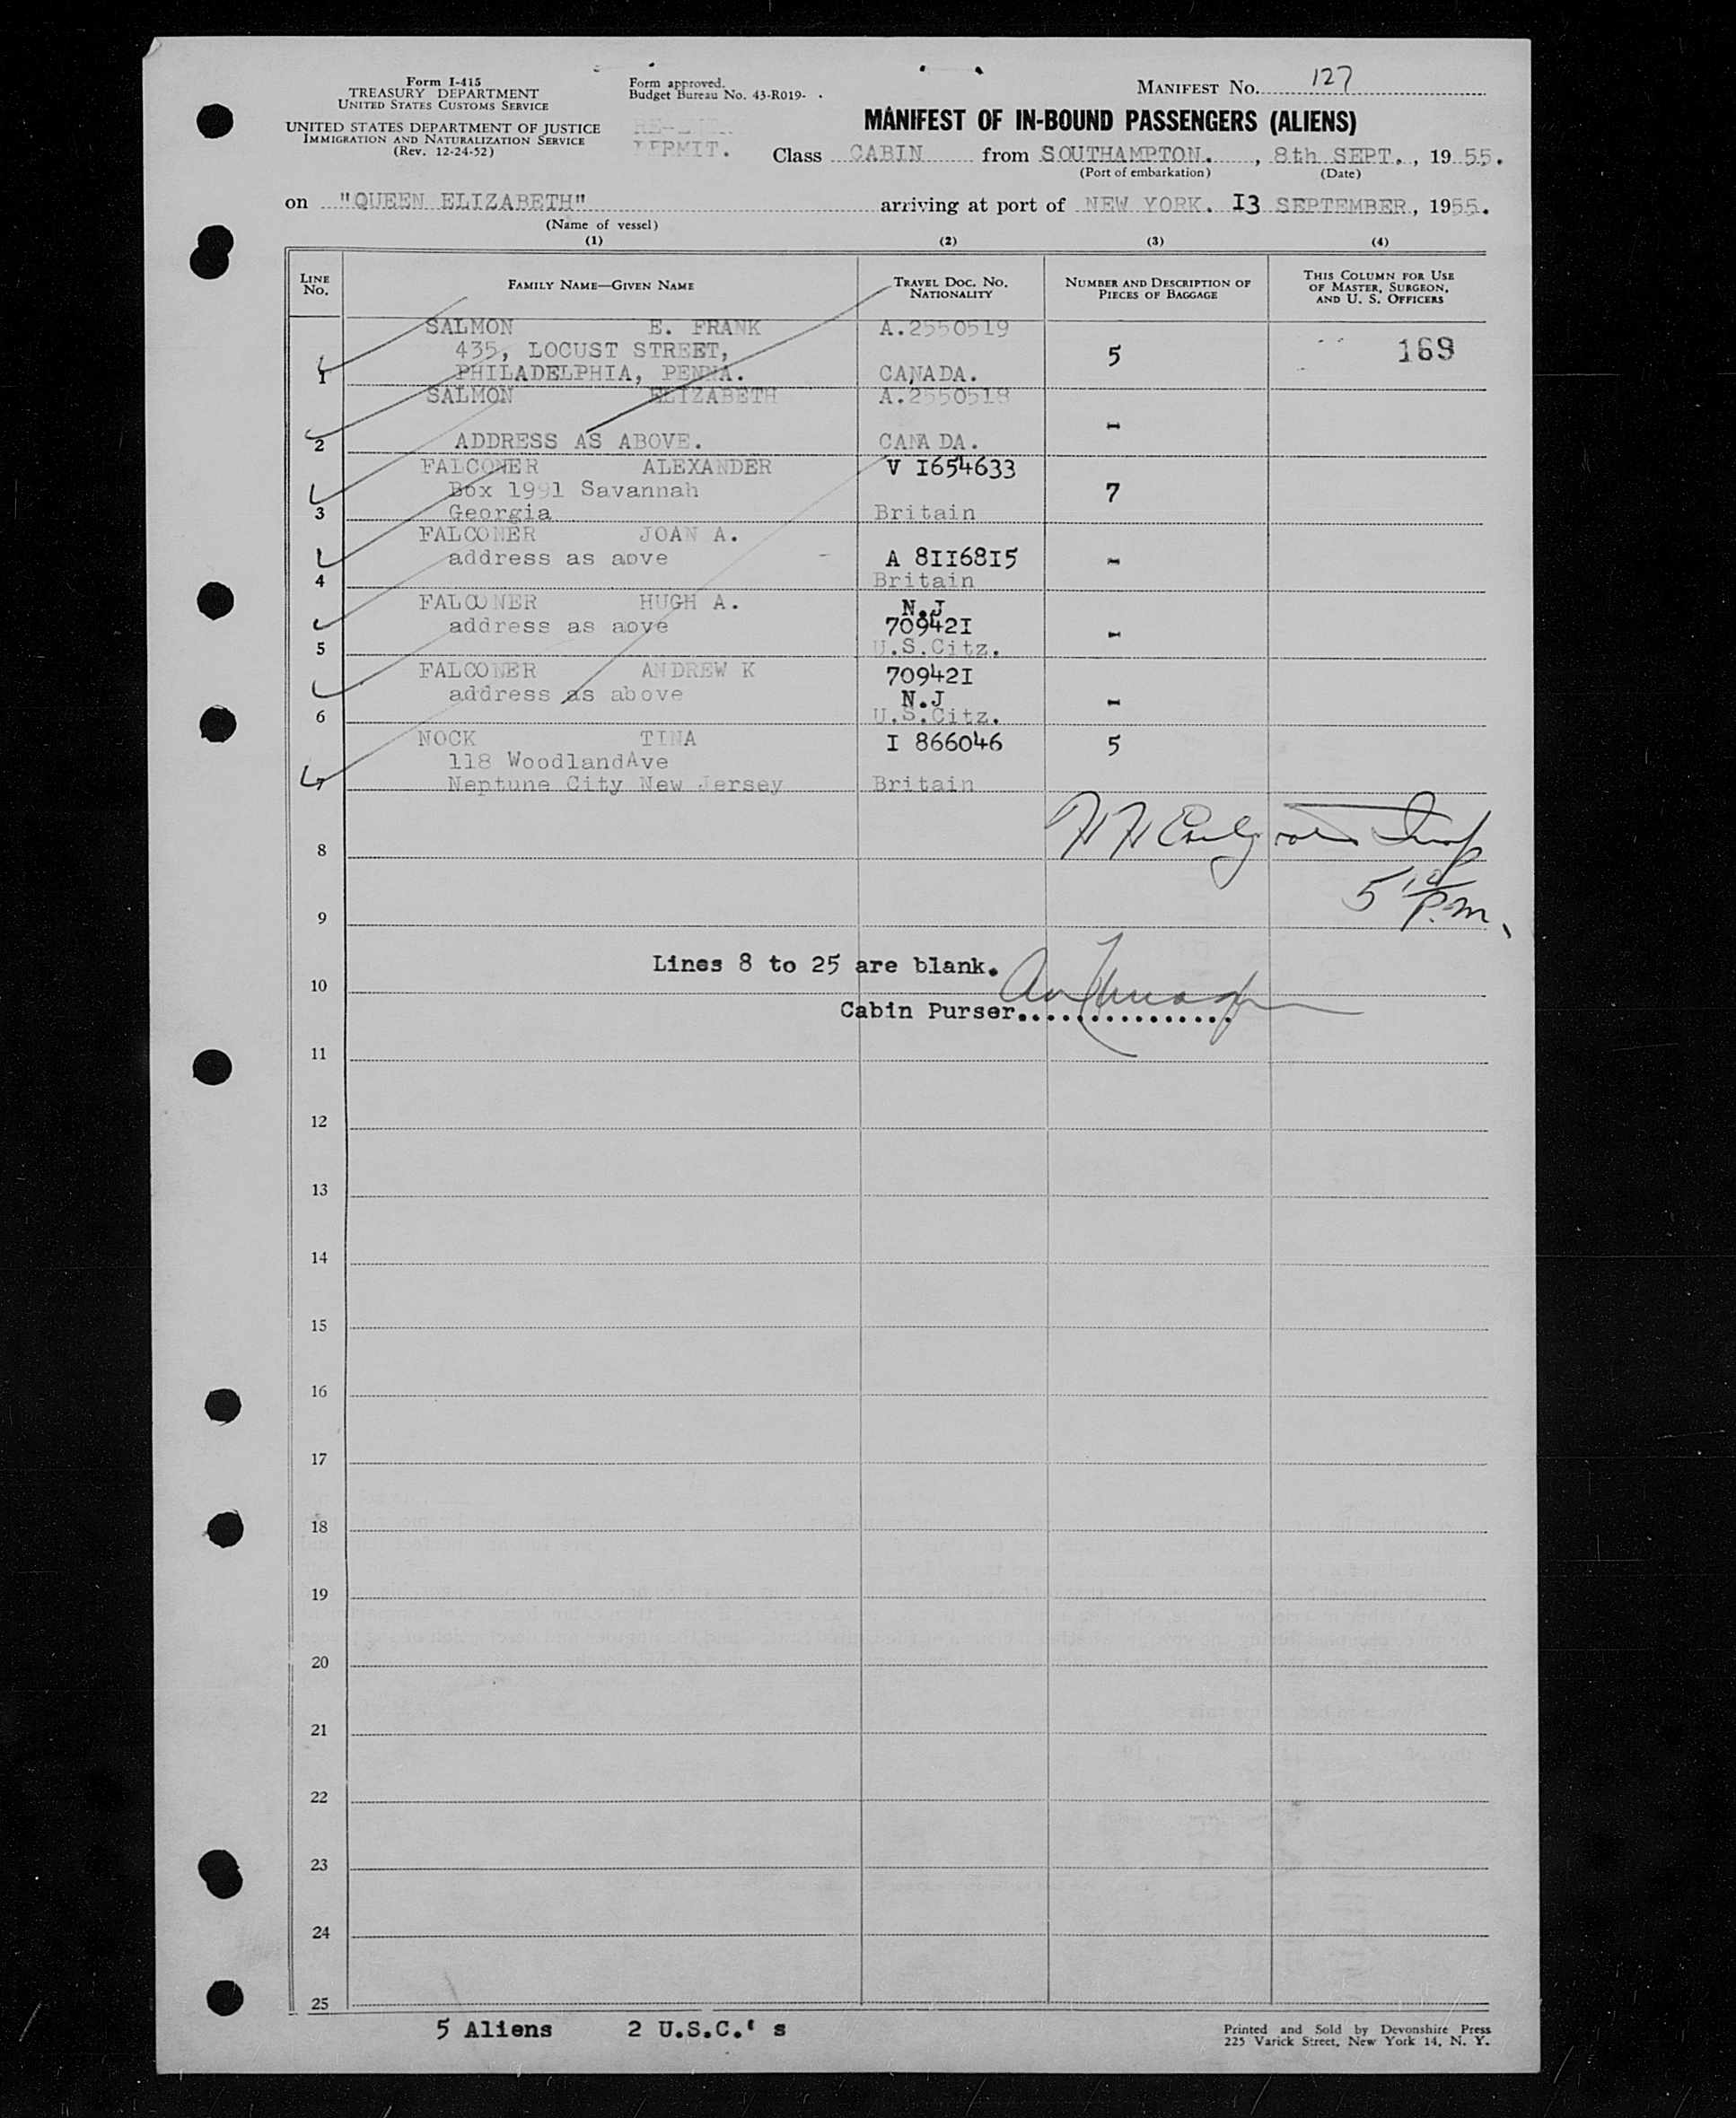 Form I-415
TREASURY DEPARTMENT
UNITED STATES CUSTOMS SERVICE
UNITED STATES DEPARTMENT OF JUSTICE
IMMIGRATION AND NATURALIZATION SERVICE
(Rev. 12-24-52)
Form approved.
Budget Bureau No. 43-R019- .
PERMIT.
MANIFEST NO. 127
MANIFEST OF IN-BOUND PASSENGERS (ALIENS)
Class CABIN from SOUTHAMPTON. , 8th SEPT. , 19 55.
(Port of embarkation) (Date)
on "QUEEN ELIZABETH" arriving at port of NEW YORK. I3 SEPTEMBER , 1955.
(Name of vessel)
(1) (2) (3) (4)
LINE NO. FAMILY NAME—GIVEN NAME TRAVEL DOC. NO. NATIONALITY NUMBER AND DESCRIPTION OF PIECES OF BAGGAGE THIS COLUMN FOR USE OF MASTER, SURGEON, AND U. S. OFFICERS
SALMON E. FRANK A.2550519
435, LOCUST STREET, 5 169
1 PHILADELPHIA, PENNA. CANADA.
SALMON ELIZABETH A.2550518
-
2 ADDRESS AS ABOVE. CANADA.
FALCONER ALEXANDER V I654633
Box 1991 Savannah 7
3 Georgia Britain
FALCONER JOAN A.
address as aove A 8II68I5 -
4 Britain
FALCONER HUGH A. N.J
address as aove 70942I -
5 U.S.Citz.
FALCONER ANDREW K 70942I
address as above N.J -
6 U.S.Citz.
NOCK TINA I 866046 5
118 WoodlandAve
7 Neptune City New Jersey Britain
8
5 10 P.m.
9
Lines 8 to 25 are blank.
10
Cabin Purser...............
11
12
13
14
15
16
17
18
19
20
21
22
23
24
25
5 Aliens 2 U.S.C.' s
Printed and Sold by Devonshire Press
225 Varick Street, New York 14, N. Y.